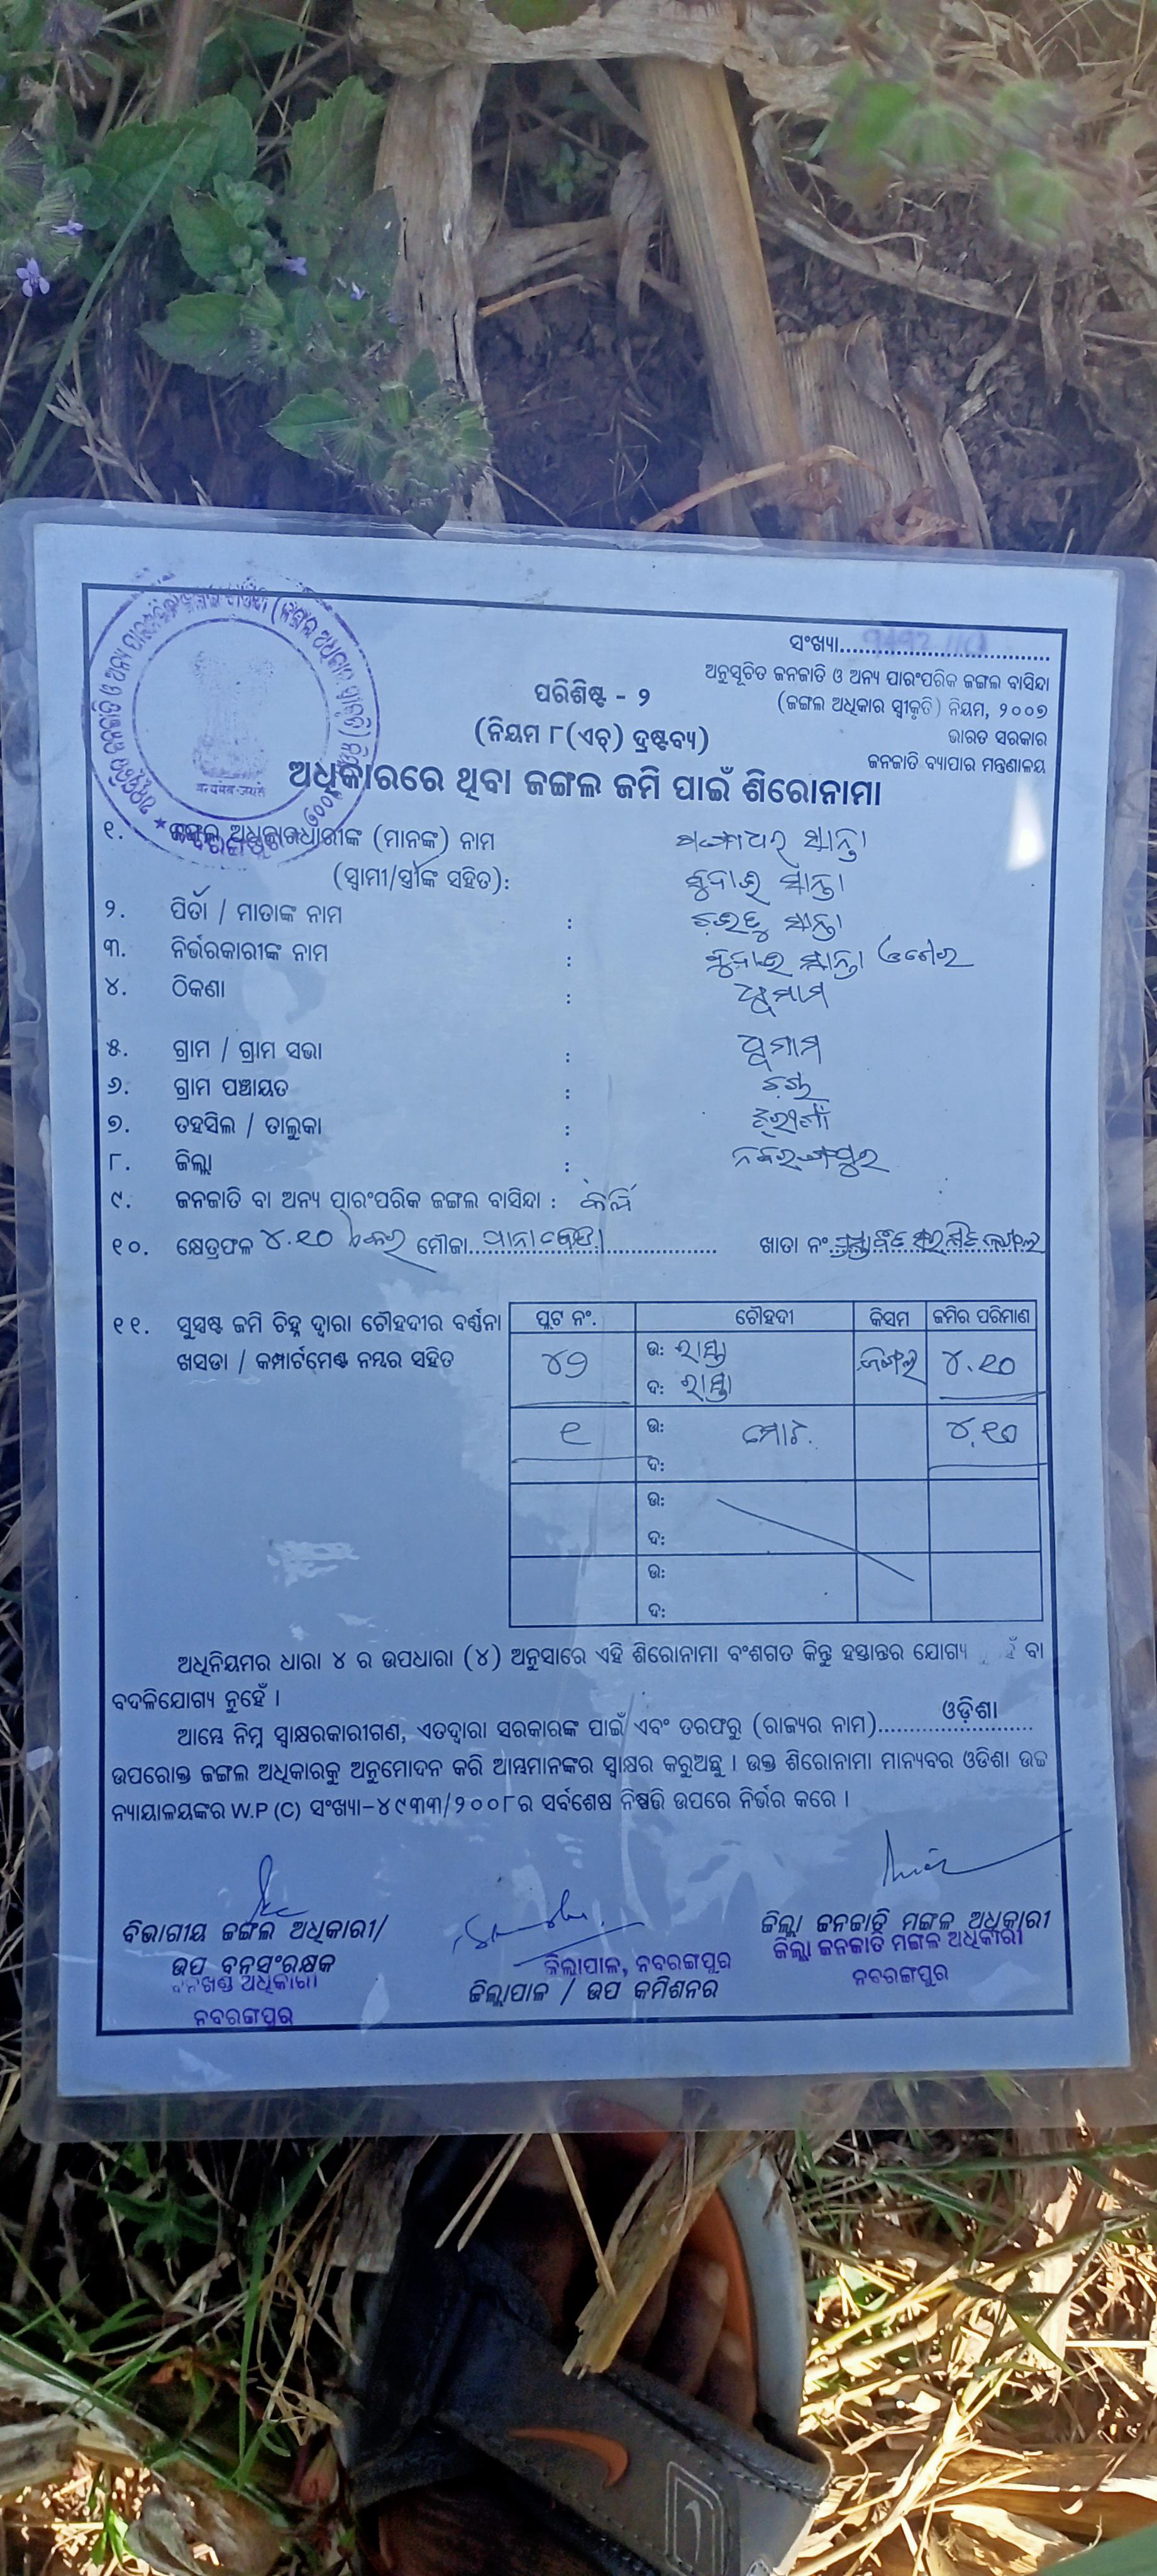 ସଂଖ୍ୟା
ଅନୁସୂଚିତ ଜନଜାତି ଓ ଅନ୍ୟ ପାରଂପରିକ ଜଙ୍ଗଲ ବାସିନ୍ଦା
(ଜଙ୍ଗଲ ଅଧିକାର ସ୍ୱୀକୃତି) ନିୟମ, ୨୦୦୭
ଭାରତ ସରକାର
ଜନଜାତି ବ୍ୟାପାର ମନ୍ତ୍ରଣାଳୟ
ପରିଶିଷ୍ଟ - ୨
(ନିୟମ ୮(ଏଚ୍) ଦ୍ରଷ୍ଟବ୍ୟ)
ଅଧିକାରରେ ଥିବା ଜଙ୍ଗଲ ଜମି ପାଇଁ ଶିରୋନାମା
୧. ଜଙ୍ଗଲ ଅଧିକାରଧାରୀଙ୍କ (ମାନଙ୍କ) ନାମ
(ସ୍ୱାମୀ/ସ୍ତ୍ରୀଙ୍କ ସହିତ):
୨. ପିତା / ମାତାଙ୍କ ନାମ :
୩. ନିର୍ଭରକାରୀଙ୍କ ନାମ :
୪. ଠିକଣା :
୫. ଗ୍ରାମ / ଗ୍ରାମ ସଭା :
୬. ଗ୍ରାମ ପଞ୍ଚାୟତ :
୭. ତହସିଲ / ତାଲୁକା :
୮. ଜିଲ୍ଲା : ନବରଙ୍ଗପୁର
୯. ଜନଜାତି ବା ଅନ୍ୟ ପାରଂପରିକ ଜଙ୍ଗଲ ବାସିନ୍ଦା :
୧୦. କ୍ଷେତ୍ରଫଳ ୪.୧୦ ଏକର ମୌଜା ଖାତା ନଂ
୧୧. ସୁସ୍ପଷ୍ଟ ଜମି ଚିହ୍ନ ଦ୍ୱାରା ଚୌହଦୀର ବର୍ଣ୍ଣନା
ଖସଡା / କମ୍ପାର୍ଟମେଣ୍ଟ ନମ୍ବର ସହିତ
ପ୍ଲଟ ନଂ. ଚୌହଦୀ କିସମ ଜମିର ପରିମାଣ
୪୨ ଉ: ରାସ୍ତା ଜଙ୍ଗଲ ୪.୧୦
ଦ: ରାସ୍ତା
୧ ଉ: ମୋଟ. ୪.୧୦
ଦ:
ଉ:
ଦ:
ଉ:
ଦ:
ଅଧିନିୟମର ଧାରା ୪ ର ଉପଧାରା (୪) ଅନୁସାରେ ଏହି ଶିରୋନାମା ବଂଶଗତ କିନ୍ତୁ ହସ୍ତାନ୍ତର ଯୋଗ୍ୟ ବା
ବଦଳିଯୋଗ୍ୟ ନୁହେଁ ।
ଆମ୍ଭେ ନିମ୍ନ ସ୍ୱାକ୍ଷରକାରୀଗଣ, ଏତଦ୍ୱାରା ସରକାରଙ୍କ ପାଇଁ ଏବଂ ତରଫରୁ (ରାଜ୍ୟର ନାମ) ଓଡ଼ିଶା
ଉପରୋକ୍ତ ଜଙ୍ଗଲ ଅଧିକାରକୁ ଅନୁମୋଦନ କରି ଆମ୍ଭମାନଙ୍କର ସ୍ୱାକ୍ଷର କରୁଅଛୁ । ଉକ୍ତ ଶିରୋନାମା ମାନ୍ୟବର ଓଡିଶା ଉଚ୍ଚ
ନ୍ୟାୟାଳୟଙ୍କର W.P (C) ସଂଖ୍ୟା-୪୯୩୩/୨୦୦୮ର ସର୍ବଶେଷ ନିଷ୍ପତ୍ତି ଉପରେ ନିର୍ଭର କରେ ।
ବିଭାଗୀୟ ଜଙ୍ଗଲ ଅଧିକାରୀ/
ଉପ ବନସଂରକ୍ଷକ
ବନଖଣ୍ଡ ଅଧିକାରୀ
ନବରଙ୍ଗପୁର
ଜିଲାପାଳ, ନବରଙ୍ଗପୁର
ଜିଲ୍ଲାପାଳ / ଉପ କମିଶନର
ଜିଲ୍ଲା ଜନଜାତି ମଙ୍ଗଳ ଅଧିକାରୀ
ଜିଲ୍ଲା ଜନଜାତି ମଙ୍ଗଳ ଅଧିକାରୀ
ନବରଙ୍ଗପୁର